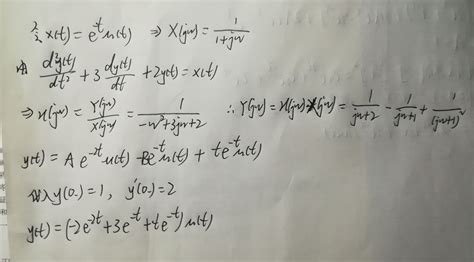 x(t) = e^{-t}u(t) ⇒ X(jw) = \frac{1}{1+jw}
由 \frac{d^2y(t)}{dt^2} + 3\frac{dy(t)}{dt} + 2y(t) = x(t)
⇒ H(jw) = \frac{Y(jw)}{X(jw)} = \frac{1}{-w^2+3jw+2} ∴ Y(jw) = H(jw) X(jw) = \frac{1}{jw+2} - \frac{1}{jw+1} + \frac{1}{(jw+1)^2}
y(t) = A e^{-2t}u(t) - Be^{-t}u(t) + te^{-t}u(t)
代入 y(0-) = 1, y'(0-) = 2
y(t) = (-2e^{-2t} + 3e^{-t} + te^{-t})u(t)